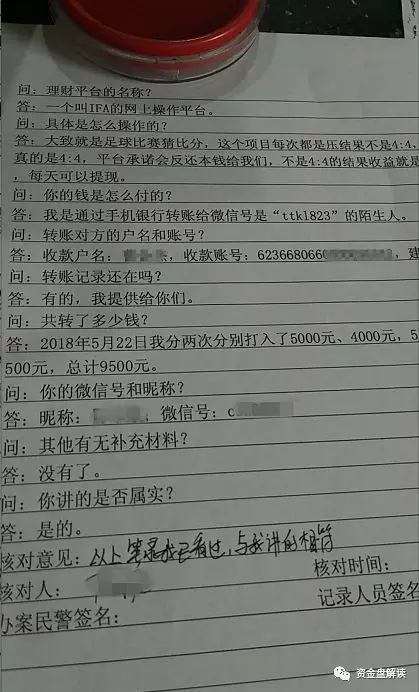 问：理财平台的名称？
答：一个叫IFA的网上操作平台。
问：具体是怎么操作的？
答：大致就是足球比赛猜比分，这个项目每次都是压结果不是4:4，
真的是4:4，平台承诺会反还本钱给我们，不是4:4的结果收益就是
，每天可以提现。
问：你的钱是怎么付的？
答：我是通过手机银行转账给微信号是“ttkl823”的陌生人。
问：转账对方的户名和账号？
答：收款户名：杰，收款账号：623668066，建
问：转账记录还在吗？
答：有的，我提供给你们。
问：共转了多少钱？
答：2018年5月22日我分两次分别打入了5000元、4000元，5
500元，总计9500元。
问：你的微信号和昵称？
答：昵称：；微信号：c
问：其他有无补充材料？
答：没有了。
问：你讲的是否属实？
答：是的。
核对意见：以上笔录我已看过，与我讲的相符
核对时间：
核对人：
记录人员签名
办案民警签名：
资金盘解读